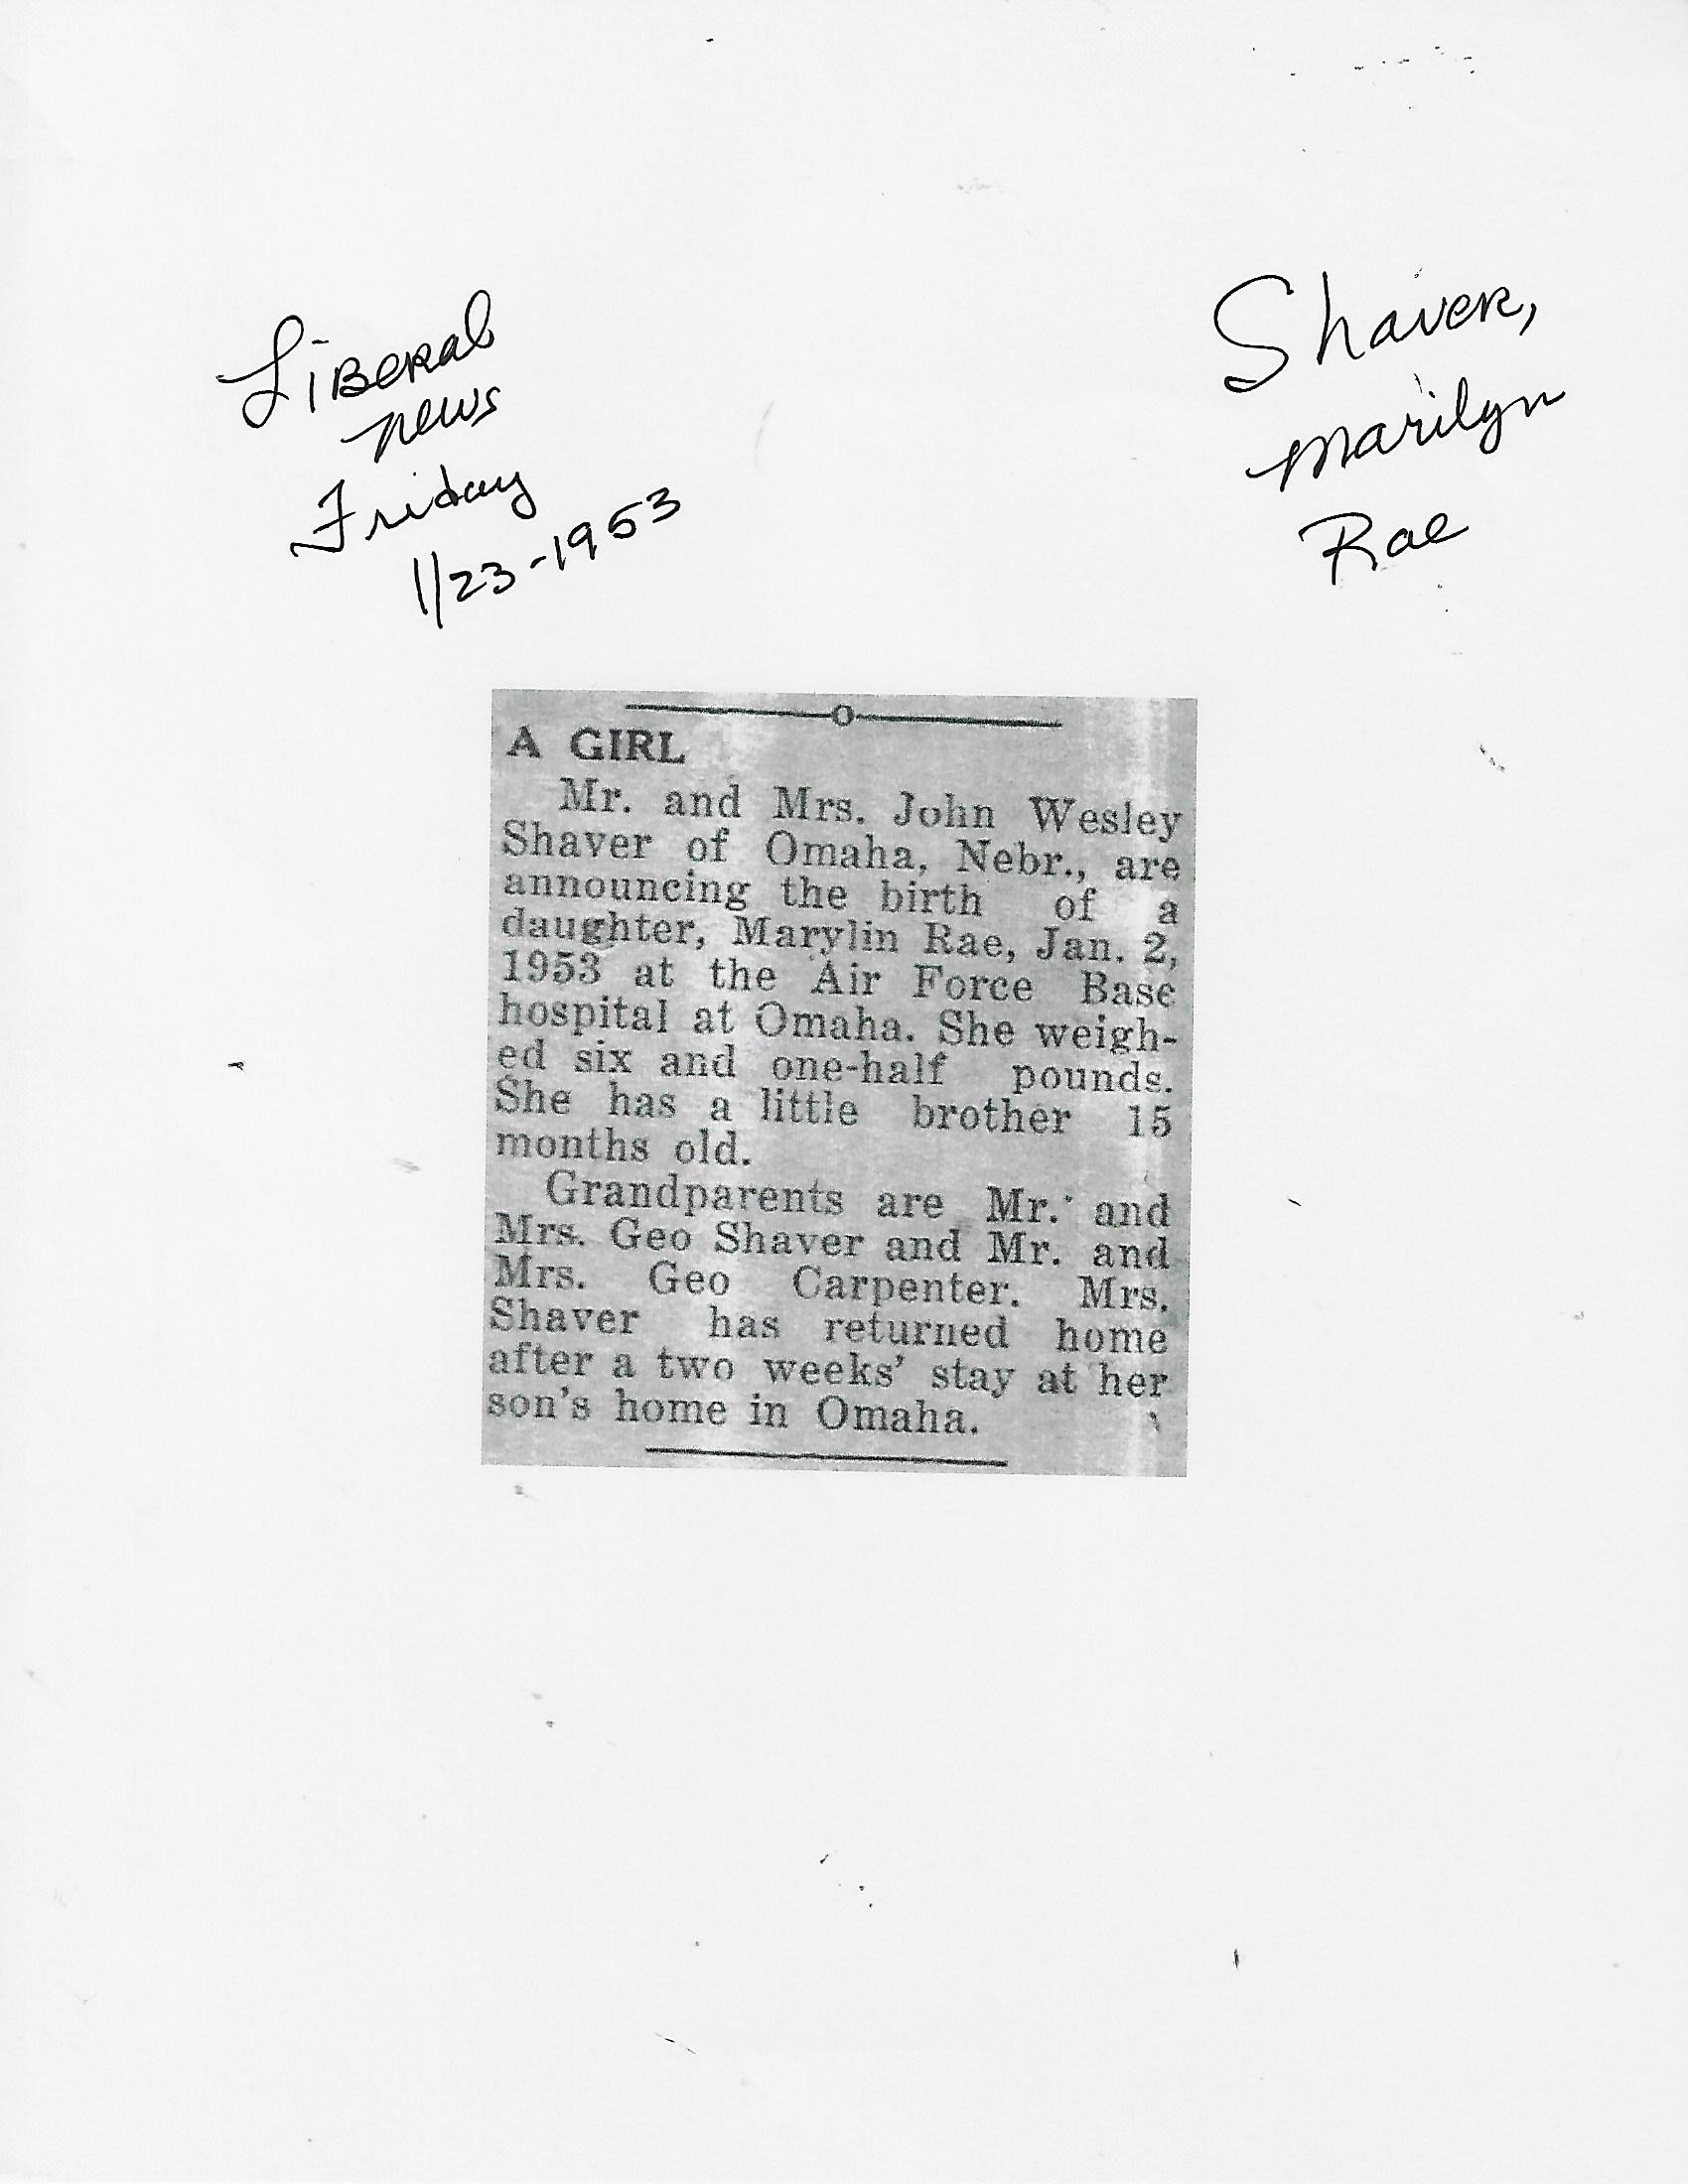 Liberal
News
Friday
1/23-1953
Shaver,
Marilyn
Rae
A GIRL
Mr. and Mrs. John Wesley
Shaver of Omaha, Nebr., are
announcing the birth of a
daughter, Marylin Rae, Jan. 2,
1953 at the Air Force Base
hospital at Omaha. She weigh-
ed six and one-half pounds.
She has a little brother 15
months old.
Grandparents are Mr. and
Mrs. Geo Shaver and Mr. and
Mrs. Geo Carpenter. Mrs.
Shaver has returned home
after a two weeks' stay at her
son's home in Omaha.